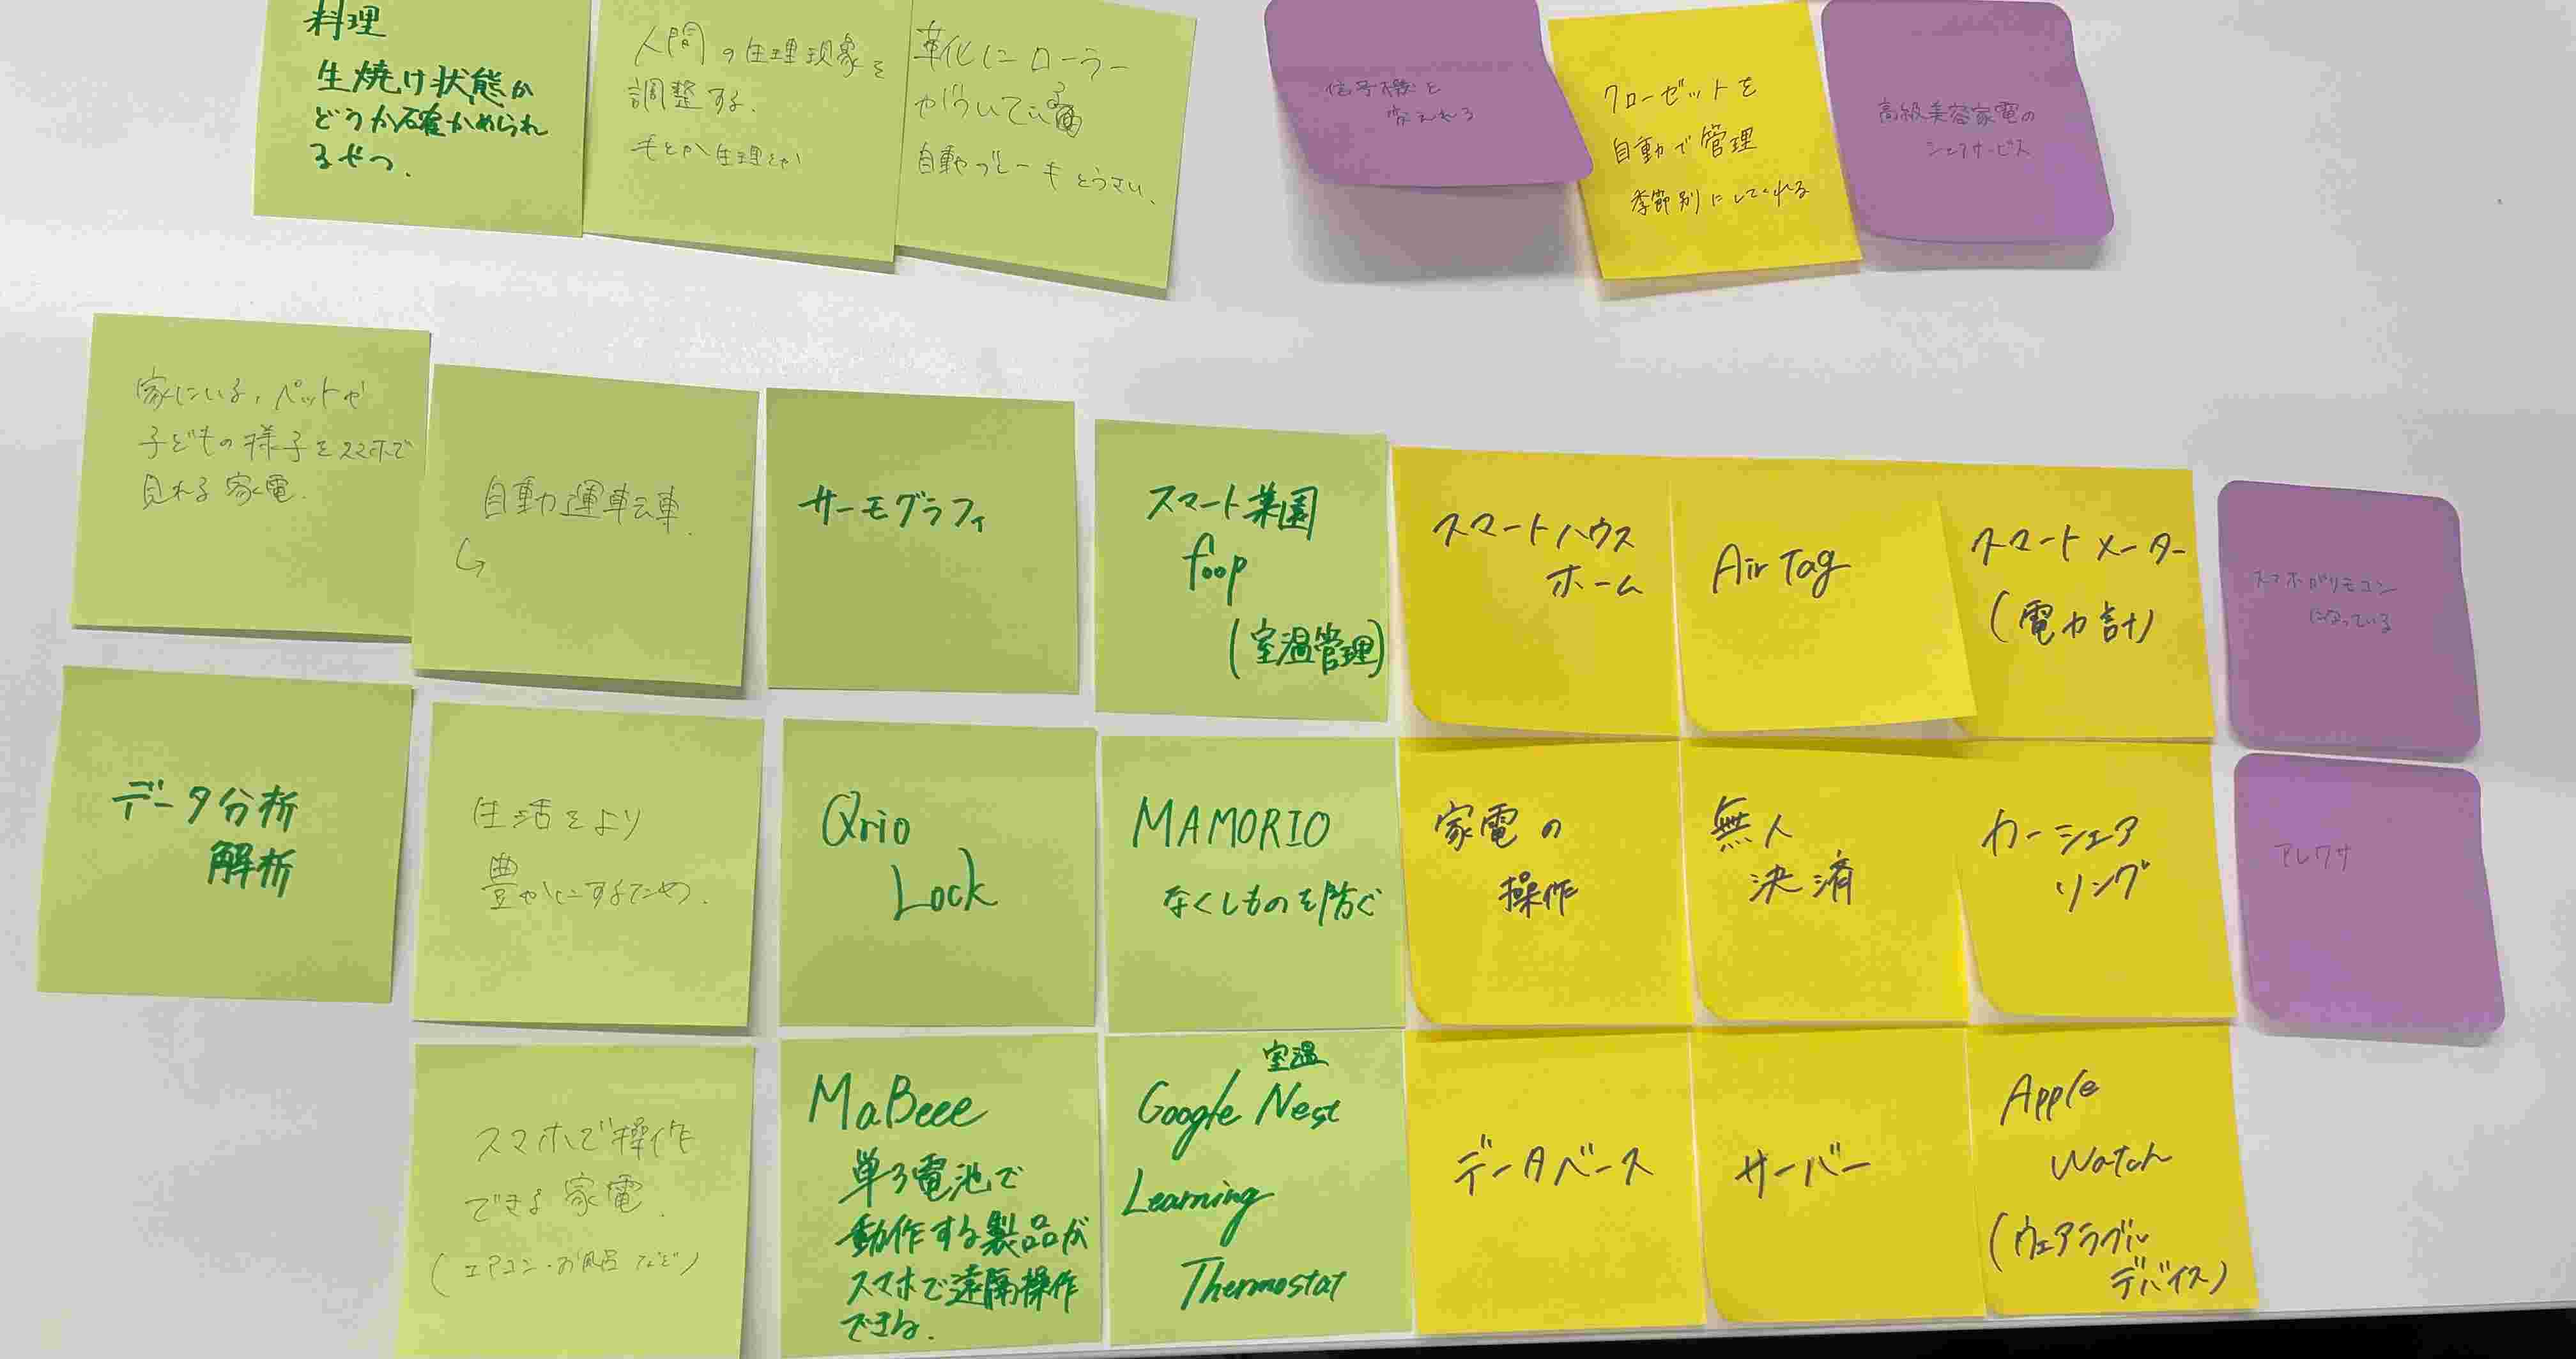 料理
生焼け状態か
どうか確かめられ
るやつ.
人間の生理現象を
調整する.
毛とか生理とか
革化にローラー
がついてい
自動ブレーキとうさい.
信号機と
変えれる
クローゼットを
自動で管理
季節別にしてくれる
高級美容家電の
シェアサービス
家にいる,ペットや
子どもの様子をスマホで
見れる家電.
自動運転車.
↳
サーモグラフィ
スマート菜園
foop
(室温管理)
スマートハウス
ホーム
Air Tag
スマートメーター
(電力計)
スマホがリモコン
になっている
データ分析
解析
生活をより
豊かにするため.
Qrio
Lock
MAMORIO
なくしものを防ぐ
家電の
操作
無人
決済
カーシェア
リング
アレクサ
スマホで操作
できる家電.
(エアコン・お風呂など)
MaBeee
単3電池で
動作する製品が
スマホで遠隔操作
できる.
室温
Google Nest
Learning
Thermostat
データベース
サーバー
Apple
Watch
(ウェアラブル
デバイス)